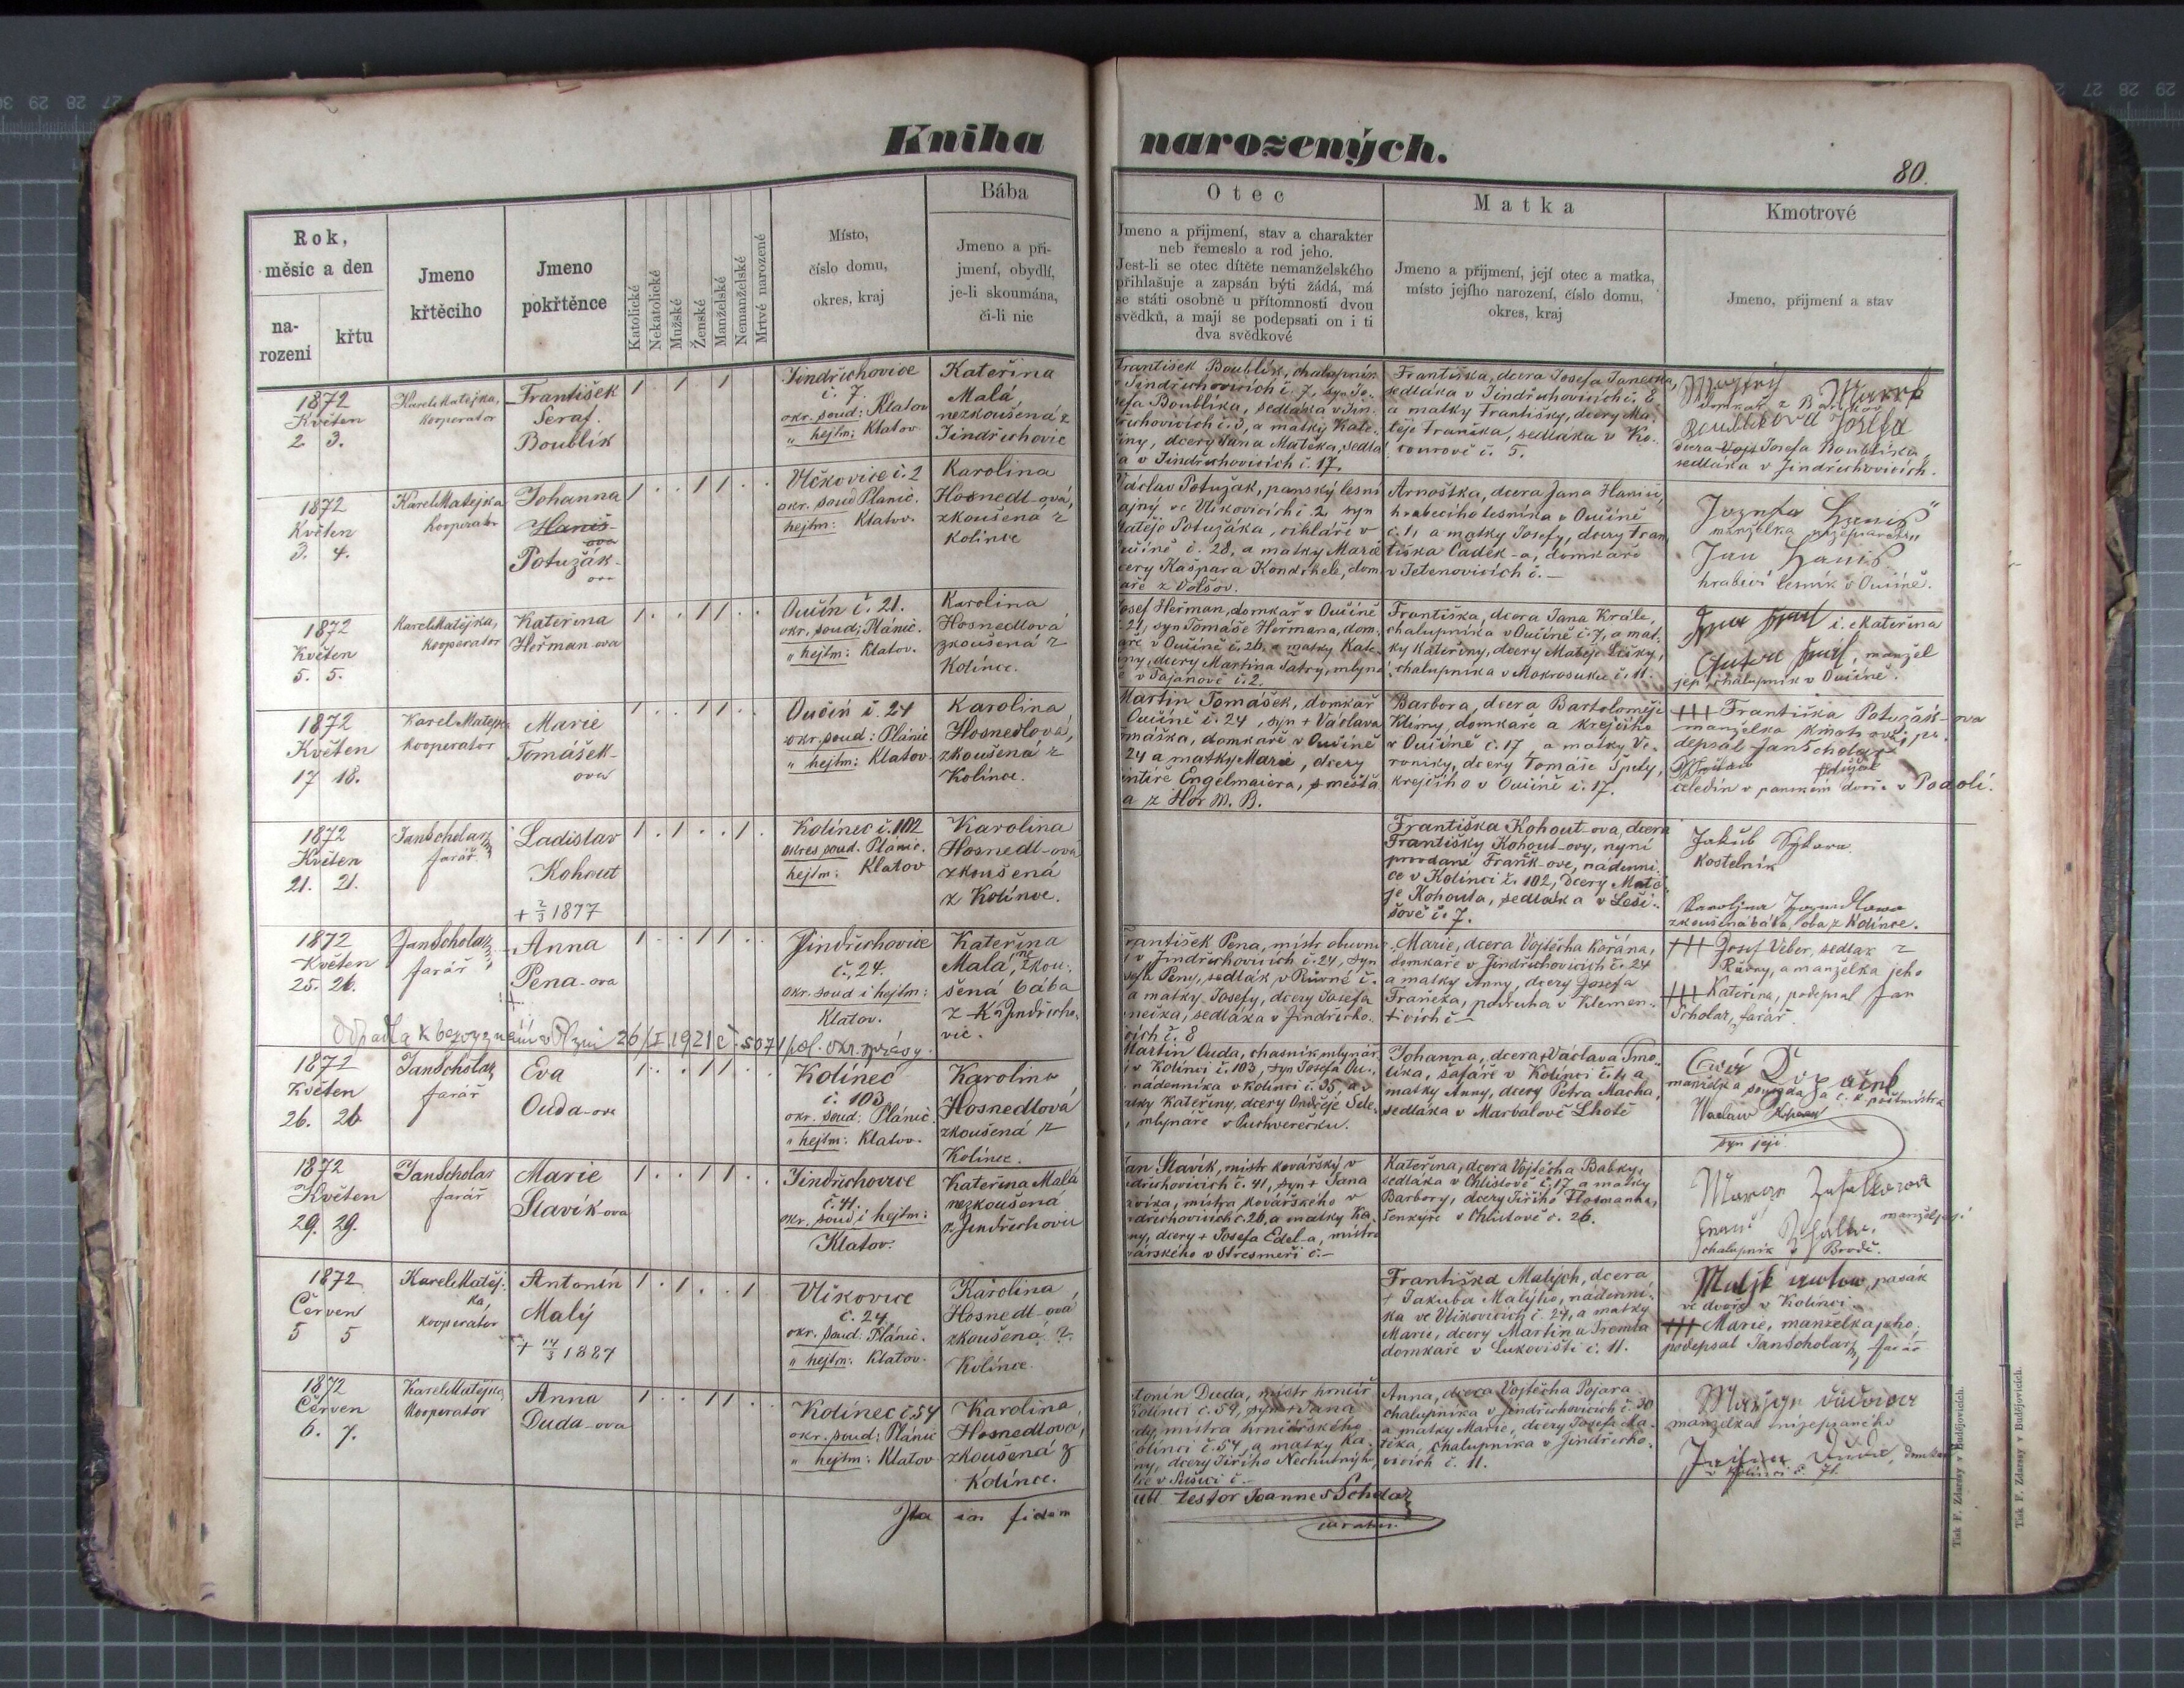 Kniha narozených.
80.
Rok,
měsíc a den
na-
rozeni
křtu
Jmeno
křtěcího
Jmeno
pokřtěnce
Katolické
Nekatolické
Mužské
Ženské
Manželské
Nemanželské
Mrtvé narozené
Místo,
číslo domu,
okres, kraj
Bába
Jmeno a při-
jmení, obydlí,
je-li skoumána,
či-li nic
Otec
Jmeno a přijmení, stav a charakter
neb řemeslo a rod jeho.
Jest-li se otec dítěte nemanželského
přihlašuje a zapsán býti žádá, má
se státi osobně u přítomnosti dvou
svědků, a mají se podepsati on i ti
dva svědkové
Matka
Jmeno a přijmení, její otec a matka,
místo jejího narození, číslo domu,
okres, kraj
Kmotrové
Jmeno, přijmení a stav
1872
Květen
2 3.
Karel Matějka,
kooperator
František
Seraf.
Boublík
Jindřichovice
č. 7.
okr. soud: Klatov
" hejtm: Klatov
Kateřina
Malá,
nezkoušená z
Jindřichovic
František Boublík, chalupník
v Jindřichovicích č. 7, syn Jo-
sefa Boublíka, sedláka v Jin-
dřichovicích č. 3, a matky Kate-
řiny, dcery Jana Matěka, sedlá
ka v Jindřichovicích č. 17.
Františka, dcera Josefa Janečka,
sedláka v Jindřichovicích č. 8
a matky Františky, dcery Ma-
těje Frančka, sedláka v Ko-
courově č. 5.
domkář z
Boublíková Josefa
dcera Josefa Boublíka,
sedláka v Jindřichovicích.
1872
Květen
3. 4.
Karel Matějka
kooperator
Johanna
Haniš-
ova
Potužák-
ova
Vlčkovice č. 2
okr. soud Plánic.
hejtm: Klatov.
Karolina
Hosnedl-ová,
zkoušená z
Kolince
Václav Potužák, panský lesní
hajný ve Vlčkovicích č. 2, syn
Matěje Potužáka, cihláře v
Oučíně č. 28, a matky Marie
dcery Kašpara Kondrkele, dom
káře z Volšov.
Arnoštka, dcera Jana Haniše,
hraběcího lesníka v Oučíně
č. 1, a matky Josefy, dcery Fran
tiška Cadek-a, domkáře
v Tetenovicích č. —
manželka
Jan Haniš
hraběcí lesník v Oučíně.
1872
Květen
5. 5.
Karel Matějka,
kooperator
Kateřina
Heřman-ova
Oučín č. 21.
okr. soud: Plánic.
" hejtm: Klatov.
Karolina
Hosnedlová
zkoušená z
Kolince.
Josef Heřman, domkář v Oučíně
č. 21, syn Tomáše Heřmana, dom-
káře v Oučíně č. 26, a matky Kate-
řiny, dcery Martina Jatry, mlyná
ře v Tajanově č. 2.
Františka, dcera Jana Krále,
chalupníka v Oučíně č. 7, a mat-
ky Kateřiny, dcery Matěje Lišky,
chalupníka v Mokrosuku č. 11.
Kateřina
manžel
její, chalupník v Oučíně.
1872
Květen
17 18.
Karel Matějka
kooperator
Marie
Tomášek-
ova
Oučín č. 24
okr. soud: Plánic
" hejtm: Klatov.
Karolina
Hosnedlová,
zkoušená z
Kolince.
Martin Tomášek, domkář
v Oučíně č. 24, syn + Václava
Tomáška, domkáře v Oučíně
24 a matky Marie, dcery
Engelmaiera, z města
a z Hor M. B.
Barbora, dcera Bartoloměje
Klímy, domkáře a krejčího
v Oučíně č. 17, a matky Ve-
roniky, dcery Tomáše Špely,
krejčího v Oučíně č. 17.
+++ Františka Potužák-ova
manželka
depsal Jan Scholar
čeledín v panském dvoře v Podolí.
1872
Květen
21. 21.
Jan Scholar
farář
Ladislav
Kohout
+ 2/3 1877
Kolinec č. 102
okres soud. Plánic.
hejtm: Klatov
Karolina
Hosnedl-ová
zkoušená
z Kolince.
Františka Kohout-ova, dcera
Františky Kohout-ovy, nyní
provdané Frančk-ove, nádenni-
ce v Kolinci č. 102, dcery Matě-
je Kohouta, sedláka v Leši-
šově č. 7.
Jakub Sýkora
kostelník
zkoušená bába, oba z Kolince.
1872
Květen
25. 26.
Jan Scholar
farář
Anna
Pena-ova
Jindřichovice
č. 24.
okr. soud i hejtm:
Klatov.
Kateřina
Malá, nezkou-
šená bába
z Jindřicho-
vic.
František Pena, mistr obuvni
v Jindřichovicích č. 24, syn
Josefa Peny, sedlák v Růvné č.
a matky Josefy, dcery Josefa
Janečka, sedláka v Jindřicho-
vicích č. 8
Marie, dcera Vojtěcha Kořána,
domkáře v Jindřichovicích č. 24
a matky Anny, dcery Josefa
Frančka, podruha v Klemen-
ticích č —
+++ Josef Veber, sedlák z
Růvny, a manželka jeho
+++ Kateřina, podepsal Jan
Scholar, farář.
Odpadla k bezvyznání v Plzni 26/I. 1921 č. 5071 pol. okr. správy.
1872
Květen
26. 26
Jan Scholar
farář
Eva
Ouda-ova
Kolinec
č. 103
okr. soud: Plánic.
" hejtm: Klatov.
Karolina
Hosnedlová
zkoušená z
Kolince.
Martin Ouda, chasník mlynář
v Kolinci č. 103, syn Josefa Ou-
nádenníka v Kolinci č. 35, a
matky Kateřiny, dcery Ondřeje Sele-
mlynáře v Puchverecku.
Johanna, dcera + Václava Smo-
líka, šafáře v Kolinci č. 1, a
matky Anny, dcery Petra Macha,
sedláka v Marbalově Lhotě
manželka c. k. poštmistra
Vaclav
syn její
1872
Květen
29. 29.
Jan Scholar
farář
Marie
Slavík-ova
Jindřichovice
č. 41.
okr. soud i hejtm:
Klatov.
Kateřina Malá
nezkoušená
z Jindřichovic
Jan Slavík, mistr kovářský v
Jindřichovicích č. 41, syn + Jana
Slavíka, mistra kovářského v
Jindřichovicích č. 20, a matky Ka
řiny, dcery + Josefa Edel-a, mistra
kovářského v Střesmeři č. —
Kateřina, dcera Vojtěcha Babky,
sedláka v Chlistově č. 17 a matky
Barbory, dcery Jiřího Flosmanna,
šenkýře v Chlistově č. 26.
manžel její
chalupník v Brodě.
1872
Červen
5 5
Karel Matěj-
ka,
kooperator
Antonín
Malý
+ 14/3 1887
Vlčkovice
č. 24
okr. soud. Plánic.
" hejtm: Klatov.
Karolina
Hosnedl-ová
zkoušená z
Kolince.
Františka Malých, dcera
+ Jakuba Malýho, nádenní-
ka ve Vlčkovicích č. 24, a matky
Marie, dcery Martina Tremla
domkáře v Lukovišti č. 11.
pasák
ve dvoře v Kolinci
+++ Marie, manželka jeho,
podepsal Jan Scholar, farář
1872
Červen
6. 7.
Karel Matějka
kooperator
Anna
Duda-ova
Kolinec č. 54
okr. soud: Plánic
" hejtm: Klatov
Karolina
Hosnedlová,
zkoušená z
Kolince.
Antonín Duda, mistr hrnčíř
v Kolinci č. 54, syn + Jana
Dudy, mistra hrnčířského
v Kolinci č. 54, a matky Ka-
řiny, dcery Jiřího Nechutných,
v Sušici č. —
Anna, dcera Vojtěcha Pojara
chalupníka v Jindřichovicích č. 30
a matky Marie, dcery Josefa Ma-
těka, chalupníka v Jindřicho-
vicích č. 11.
manželka nížepsaného
v Kolinci č. 71.
Ita in fidem
testor Joannes Scholar
curatus.
Tisk F. Zdarssy v Budějovicích.
Tisk F. Zdarssy v Budějovicích.